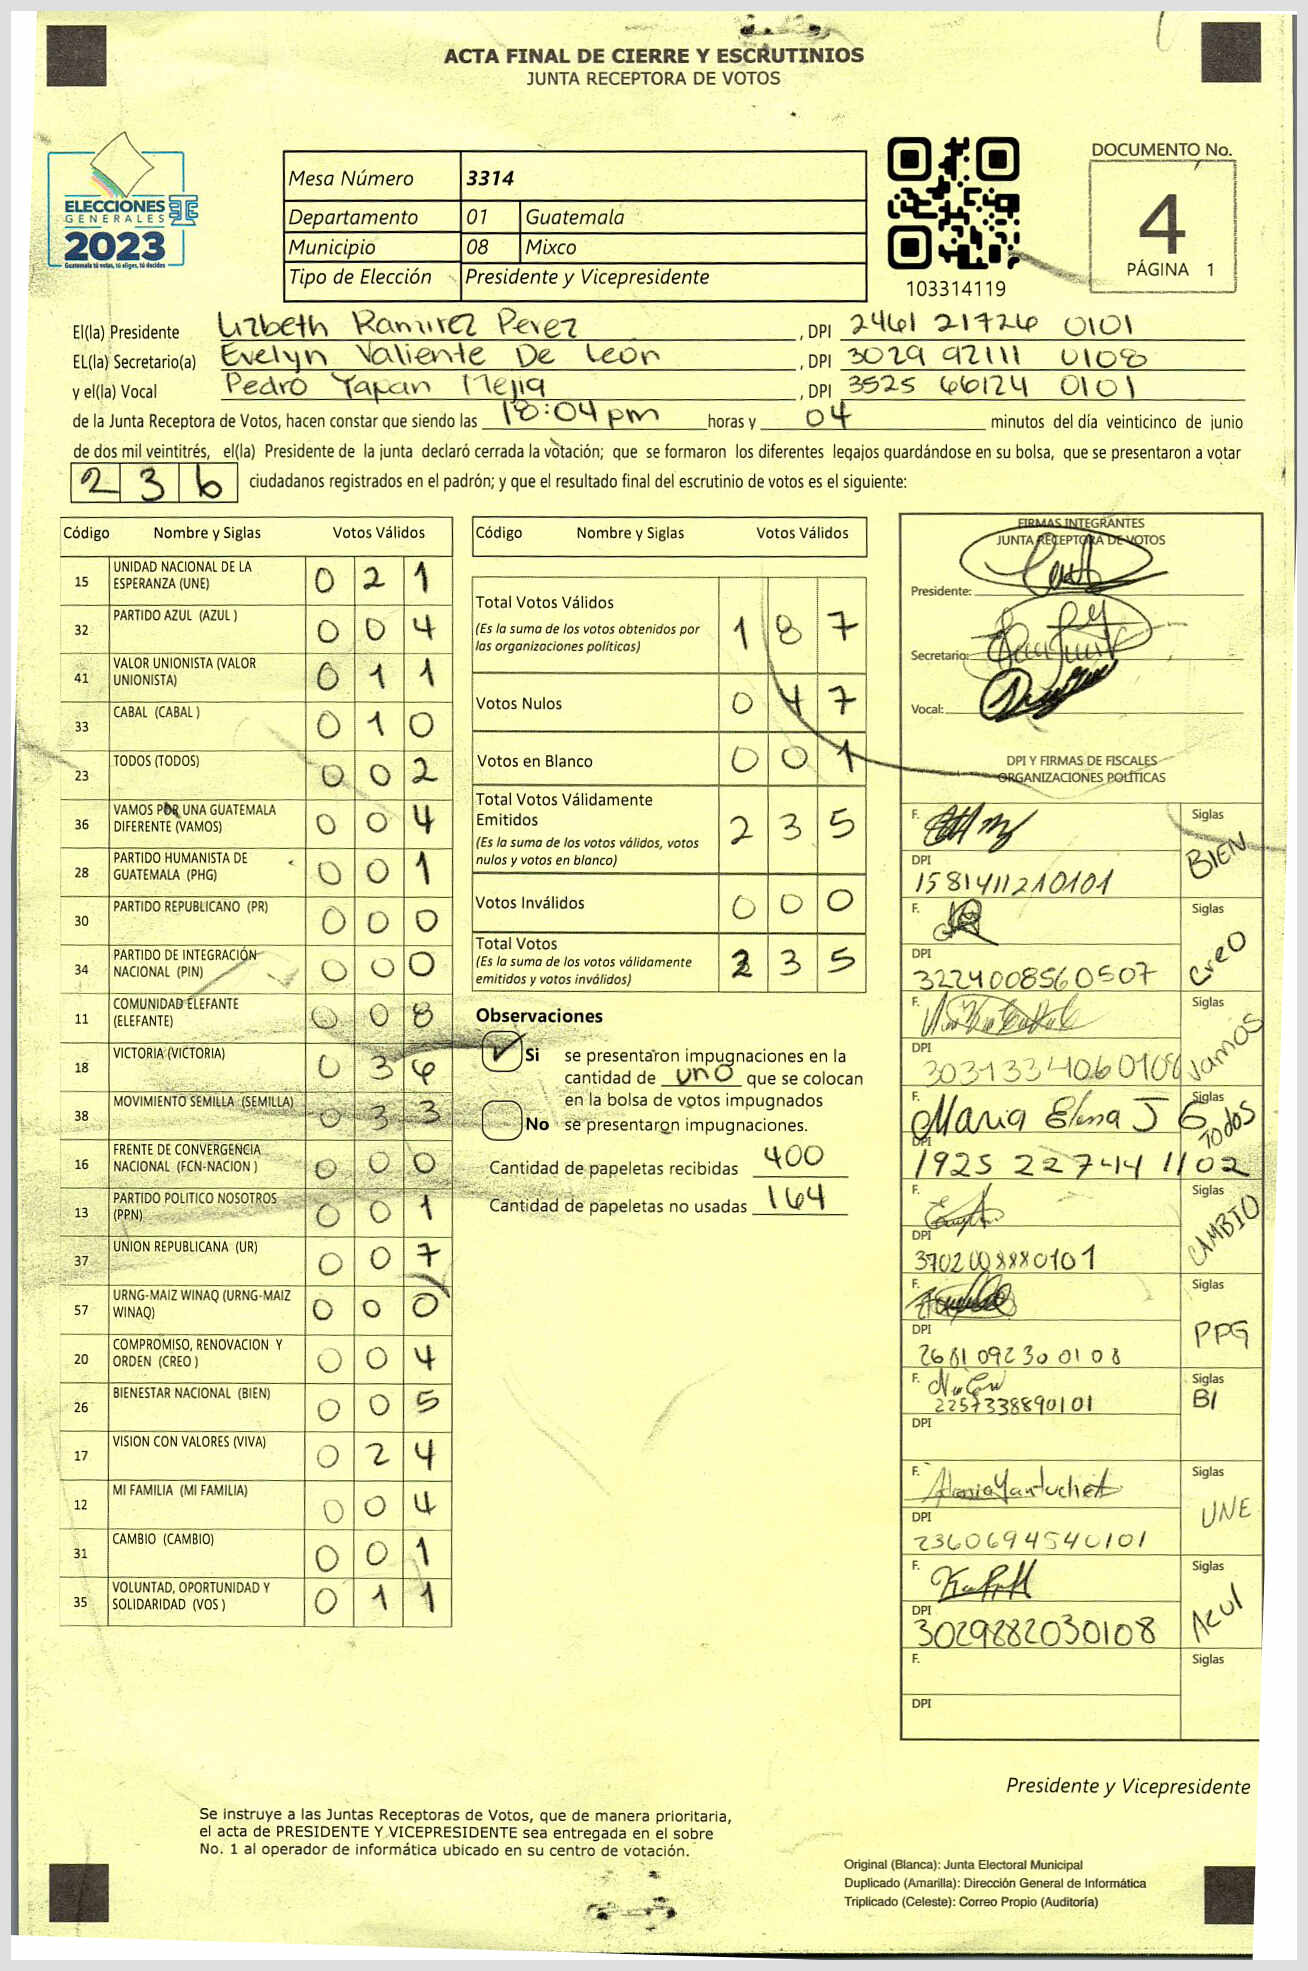 ACTA FINAL DE CIERRE Y ESCRUTINIOS
JUNTA RECEPTORA DE VOTOS
ELECCIONES
GENERALES
2023
Guatemala tú votas, tú eliges, tú decides
Mesa Número 3314
Departamento 01 Guatemala
Municipio 08 Mixco
Tipo de Elección Presidente y Vicepresidente
103314119
DOCUMENTO No.
4
PÁGINA 1
El(la) Presidente Lizbeth Ramirez Perez, DPI 2461 21726 0101
EL(la) Secretario(a) Evelyn Valiente De León, DPI 3029 92111 0108
y el(la) Vocal Pedro Yapan Mejia, DPI 3525 66124 0101
de la Junta Receptora de Votos, hacen constar que siendo las 18:04 pm horas y 04 minutos del día veinticinco de junio
de dos mil veintitrés, el(la) Presidente de la junta declaró cerrada la votación; que se formaron los diferentes legajos guardándose en su bolsa, que se presentaron a votar
236 ciudadanos registrados en el padrón; y que el resultado final del escrutinio de votos es el siguiente:
Código Nombre y Siglas Votos Válidos
15 UNIDAD NACIONAL DE LA ESPERANZA (UNE) 0 2 1
32 PARTIDO AZUL (AZUL ) 0 0 4
41 VALOR UNIONISTA (VALOR UNIONISTA) 0 1 1
33 CABAL (CABAL ) 0 1 0
23 TODOS (TODOS) 0 0 2
36 VAMOS POR UNA GUATEMALA DIFERENTE (VAMOS) 0 0 4
28 PARTIDO HUMANISTA DE GUATEMALA (PHG) 0 0 1
30 PARTIDO REPUBLICANO (PR) 0 0 0
34 PARTIDO DE INTEGRACIÓN NACIONAL (PIN) 0 0 0
11 COMUNIDAD ELEFANTE (ELEFANTE) 0 0 8
18 VICTORIA (VICTORIA) 0 3 6
38 MOVIMIENTO SEMILLA (SEMILLA) 0 3 3
16 FRENTE DE CONVERGENCIA NACIONAL (FCN-NACION ) 0 0 0
13 PARTIDO POLITICO NOSOTROS (PPN) 0 0 1
37 UNION REPUBLICANA (UR) 0 0 7
57 URNG-MAIZ WINAQ (URNG-MAIZ WINAQ) 0 0 0
20 COMPROMISO, RENOVACION Y ORDEN (CREO ) 0 0 4
26 BIENESTAR NACIONAL (BIEN) 0 0 5
17 VISION CON VALORES (VIVA) 0 2 4
12 MI FAMILIA (MI FAMILIA) 0 0 4
31 CAMBIO (CAMBIO) 0 0 1
35 VOLUNTAD, OPORTUNIDAD Y SOLIDARIDAD (VOS ) 0 1 1
Código Nombre y Siglas Votos Válidos
Total Votos Válidos 1 8 7
(Es la suma de los votos obtenidos por
las organizaciones políticas)
Votos Nulos 0 4 7
Votos en Blanco 0 0 1
Total Votos Válidamente
Emitidos 2 3 5
(Es la suma de los votos válidos, votos
nulos y votos en blanco)
Votos Inválidos 0 0 0
Total Votos 2 3 5
(Es la suma de los votos válidamente
emitidos y votos inválidos)
Observaciones
Si se presentaron impugnaciones en la
cantidad de uno que se colocan
en la bolsa de votos impugnados
No se presentaron impugnaciones.
Cantidad de papeletas recibidas 400
Cantidad de papeletas no usadas 164
FIRMAS INTEGRANTES
JUNTA RECEPTORA DE VOTOS
Presidente:
Secretario:
Vocal:
DPI Y FIRMAS DE FISCALES
ORGANIZACIONES POLÍTICAS
F. Siglas BIEN
DPI 1581411210101
F. Siglas Creo
DPI 3224008560507
F. Siglas Vamos
DPI 3031334060108
F. Maria Elena J G Siglas Todos
DPI 1925 22744 1102
F. Siglas CAMBIO
DPI 3702008880101
F. Siglas PPG
DPI 2681 09230 0108
F. Siglas BI
2257338890101
DPI
F. Siglas UNE
DPI 2360694540101
F. Siglas Azul
DPI 3029882030108
F. Siglas
DPI
Presidente y Vicepresidente
Se instruye a las Juntas Receptoras de Votos, que de manera prioritaria,
el acta de PRESIDENTE Y VICEPRESIDENTE sea entregada en el sobre
No. 1 al operador de informática ubicado en su centro de votación.
Original (Blanca): Junta Electoral Municipal
Duplicado (Amarilla): Dirección General de Informática
Triplicado (Celeste): Correo Propio (Auditoría)